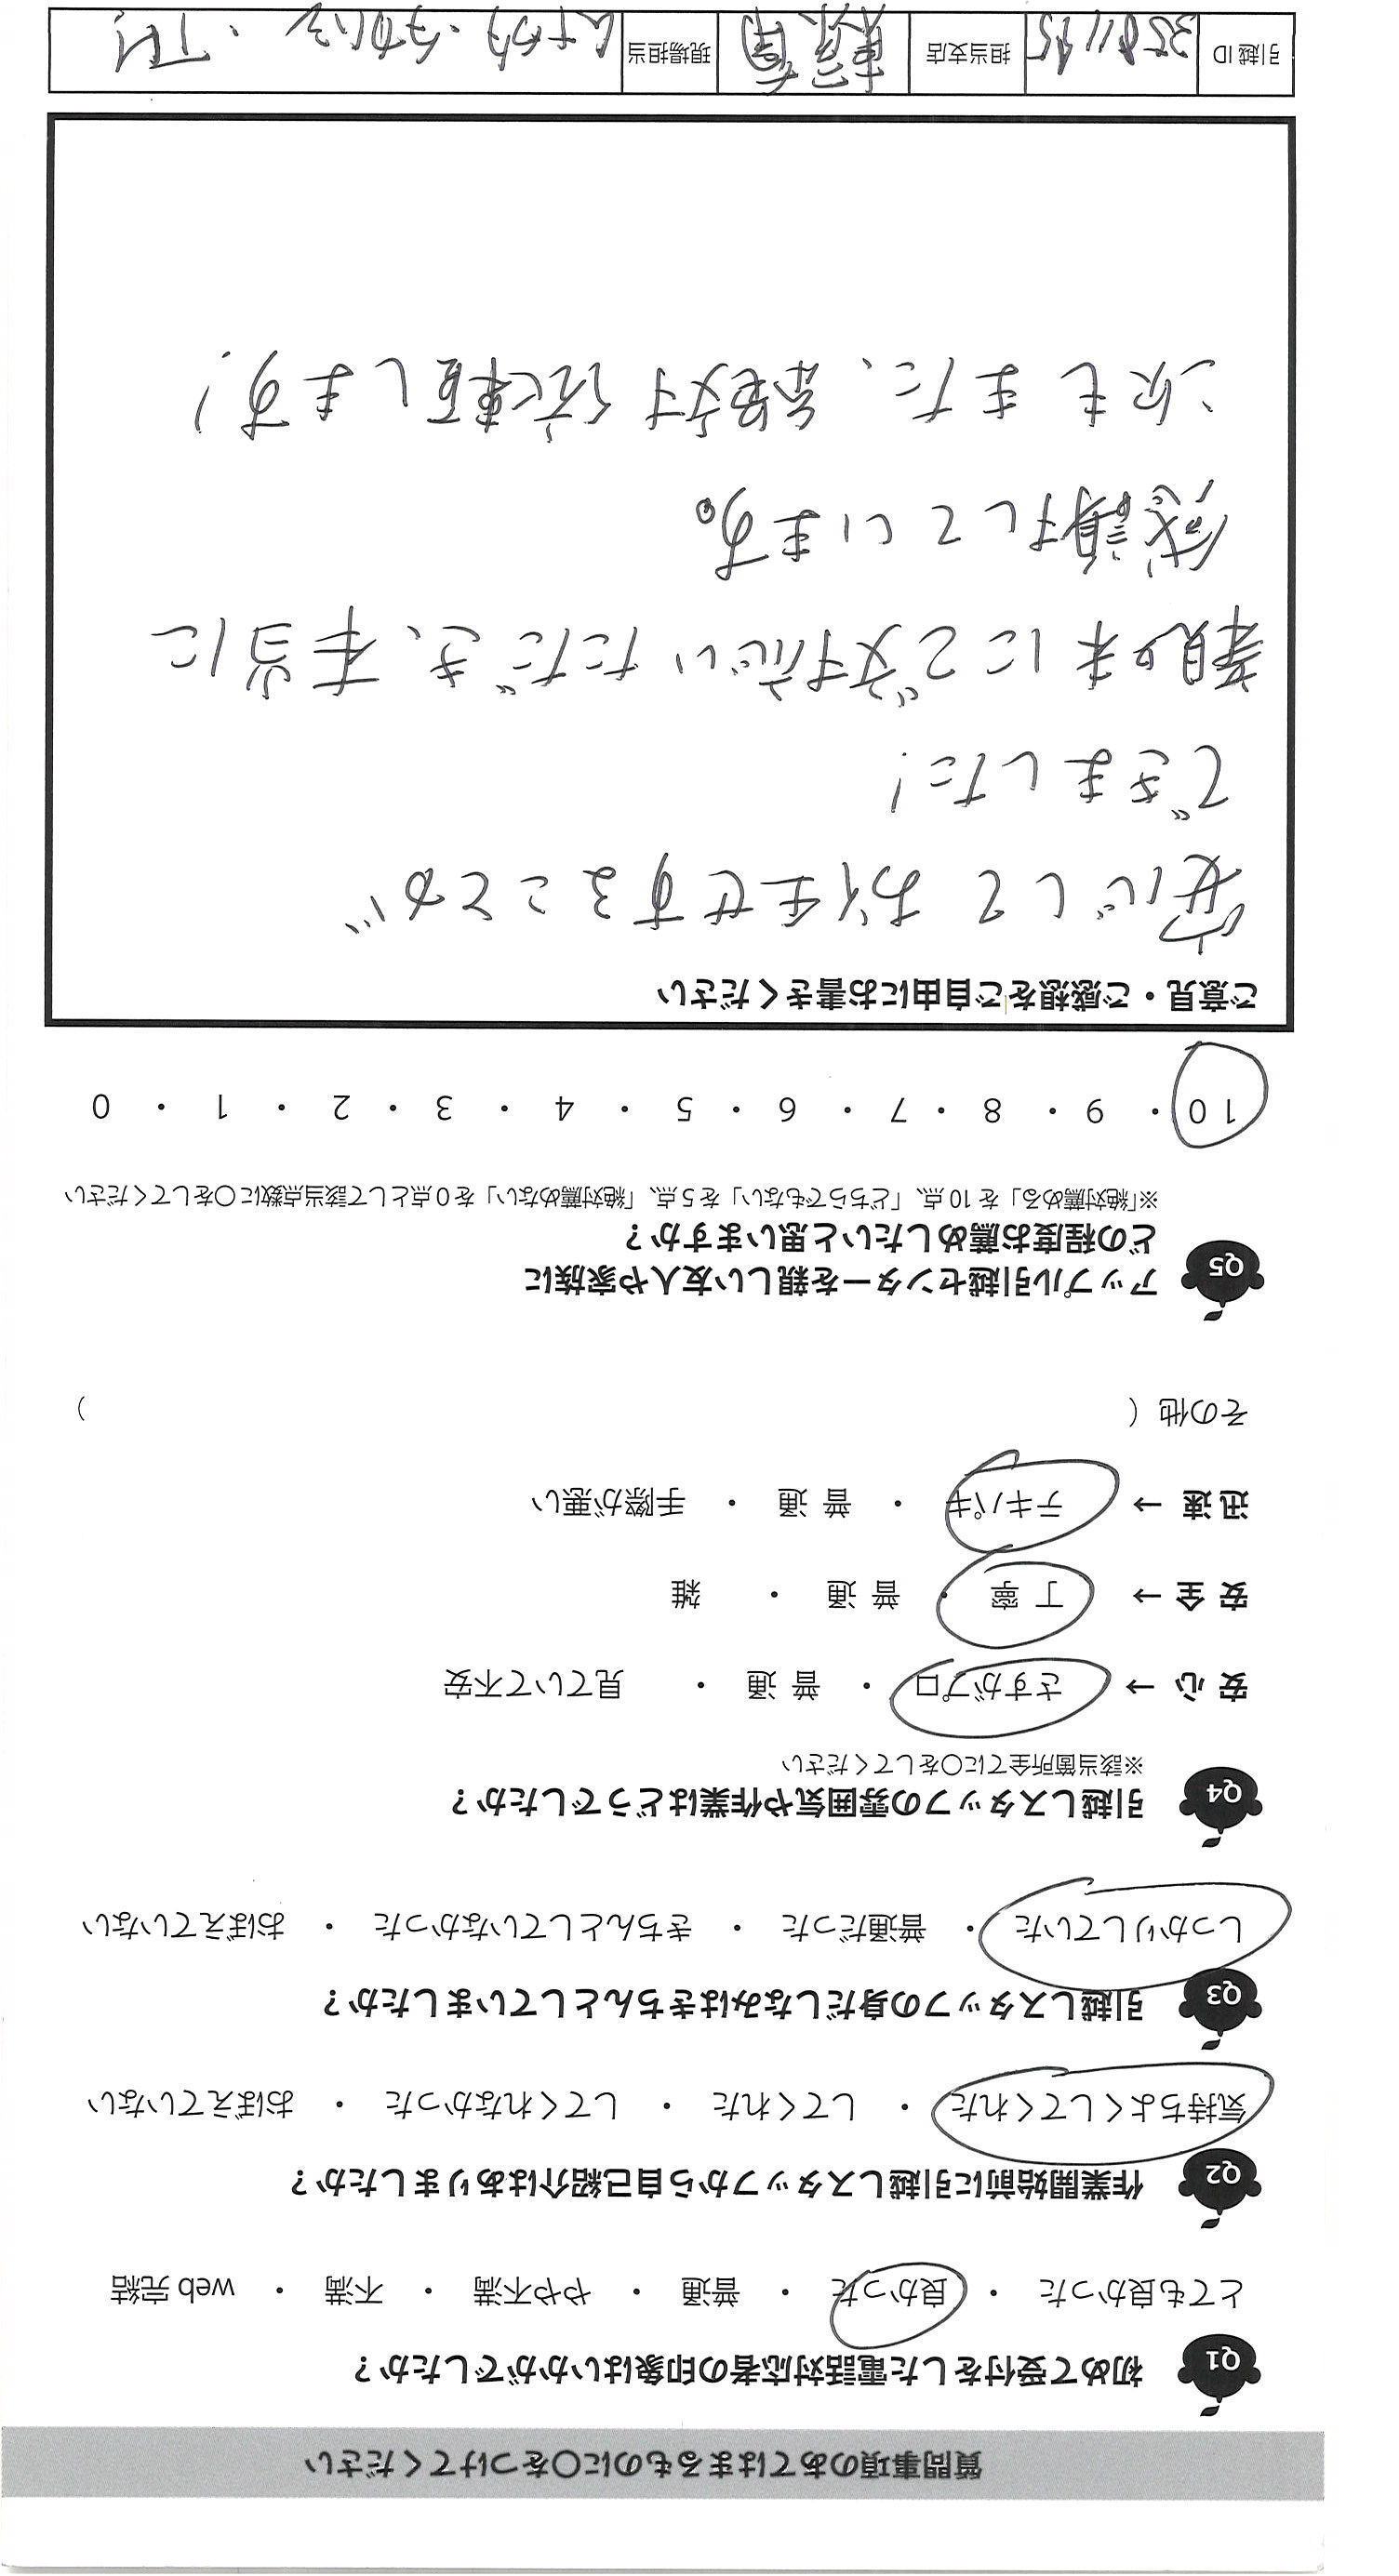 質問事項のあてはまるものに○をつけてください
Q1 初めて受付をした電話対応者の印象はいかがでしたか？
とても良かった ・ 良かった ・ 普通 ・ やや不満 ・ 不満 ・ web 完結
Q2 作業開始前に引越しスタッフから自己紹介はありましたか？
気持ちよくしてくれた ・ してくれた ・ してくれなかった ・ おぼえていない
Q3 引越しスタッフの身だしなみはきちんとしていましたか？
しっかりしていた ・ 普通だった ・ きちんとしていなかった ・ おぼえていない
Q4 引越しスタッフの雰囲気や作業はどうでしたか？
※該当箇所全てに○をしてください
安 心 → さすがプロ ・ 普 通 ・ 見ていて不安
安 全 → 丁 寧 ・ 普 通 ・ 雑
迅 速 → テキパキ ・ 普 通 ・ 手際が悪い
その他（ ）
Q5 アップル引越センターを親しい友人や家族に
どの程度お薦めしたいと思いますか？
※「絶対薦める」を 10 点、「どちらでもない」を 5 点、「絶対薦めない」を 0 点として該当点数に○をしてください
10 ・ 9 ・ 8 ・ 7 ・ 6 ・ 5 ・ 4 ・ 3 ・ 2 ・ 1 ・ 0
ご意見・ご感想をご自由にお書きください
安心して お任せすることが
できました！
親身にご対応いただき、本当に
感謝しています。
次もまた、絶対依頼します！
引越 ID 担当支店 現場担当